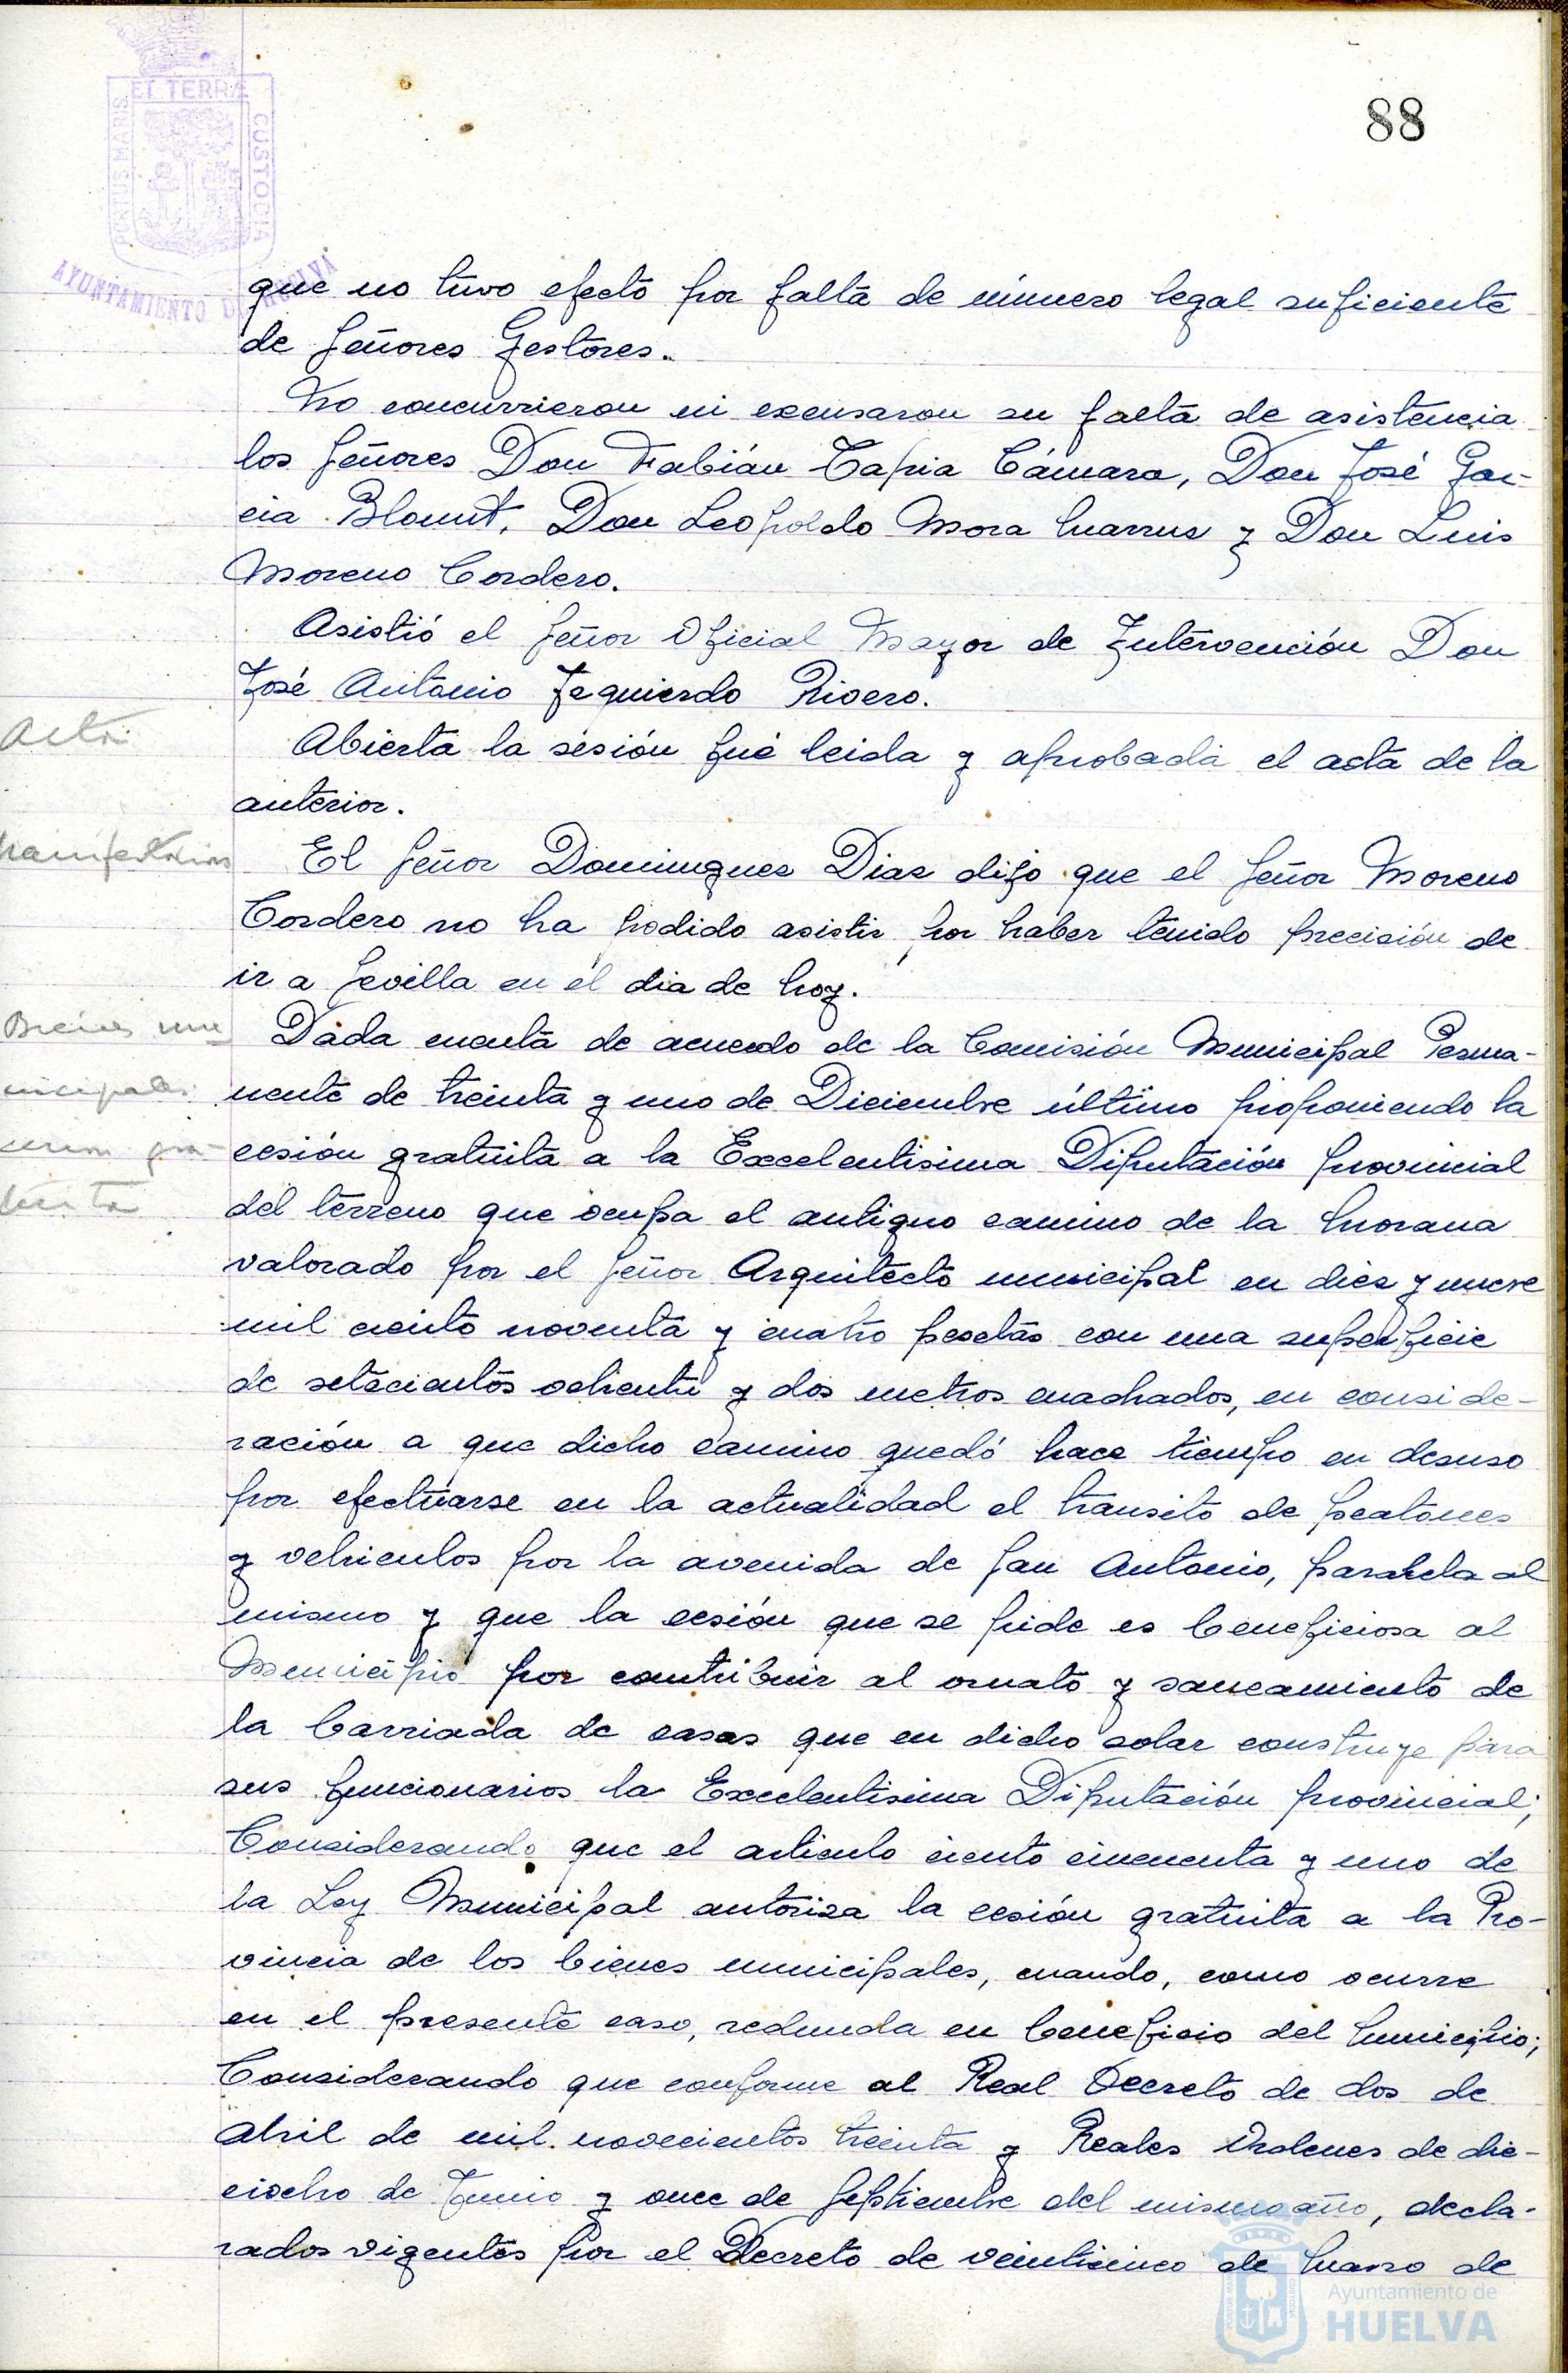 88
ET TERRÆ
PORTUS MARIS
CUSTODIA
AYUNTAMIENTO DE HUELVA
que no tuvo efecto por falta de número legal suficiente
de Señores Gestores.
No concurrieron ni excusaron su falta de asistencia
los Señores Don Fabián Tapia Cámara, Don José Gar-
cia Blount, Don Leopoldo Mora y Don Luis
Moreno Cordero.
Asistió el Señor Oficial Mayor de Intervención Don
José Antonio Izquierdo Rivero.
Acta
Abierta la sesión fué leida y aprobada el acta de la
anterior.
Manifestacion
El Señor Dominguez Diaz dijo que el Señor Moreno
Cordero no ha podido asistir por haber tenido precisión de
ir a Sevilla en el dia de hoy.
Bienes mu
nicipales
cesion gra-
tuita
Dada cuenta de acuerdo de la Comisión Municipal Perma-
nente de treinta y uno de Diciembre último proponiendo la
cesión gratuita a la Excelentisima Diputación provincial
del terreno que ocupa el antiguo camino de la Morana
valorado por el Señor Arquitecto municipal en diez y nueve
mil ciento noventa y cuatro pesetas con una superficie
de setecientos ochenta y dos metros cuadrados, en conside-
ración a que dicho camino quedó hace tiempo en desuso
por efectuarse en la actualidad el transito de peatones
y vehiculos por la avenida de San Antonio, paralela al
mismo y que la cesión que se pide es beneficiosa al
Municipio por contribuir al ornato y saneamiento de
la barriada de casas que en dicho solar construye para
sus funcionarios la Excelentisima Diputación provincial;
Considerando que el articulo ciento cincuenta y uno de
la Ley Municipal autoriza la cesión gratuita a la Pro-
vincia de los bienes municipales, cuando, como ocurre
en el presente caso, redunda en beneficio del Municipio;
Considerando que conforme al Real Decreto de dos de
Abril de mil novecientos treinta y Reales Ordenes de die-
ciocho de Junio y once de Septiembre del mismo año, decla-
rados vigentes por el Decreto de veinticinco de Marzo de
Ayuntamiento de
HUELVA